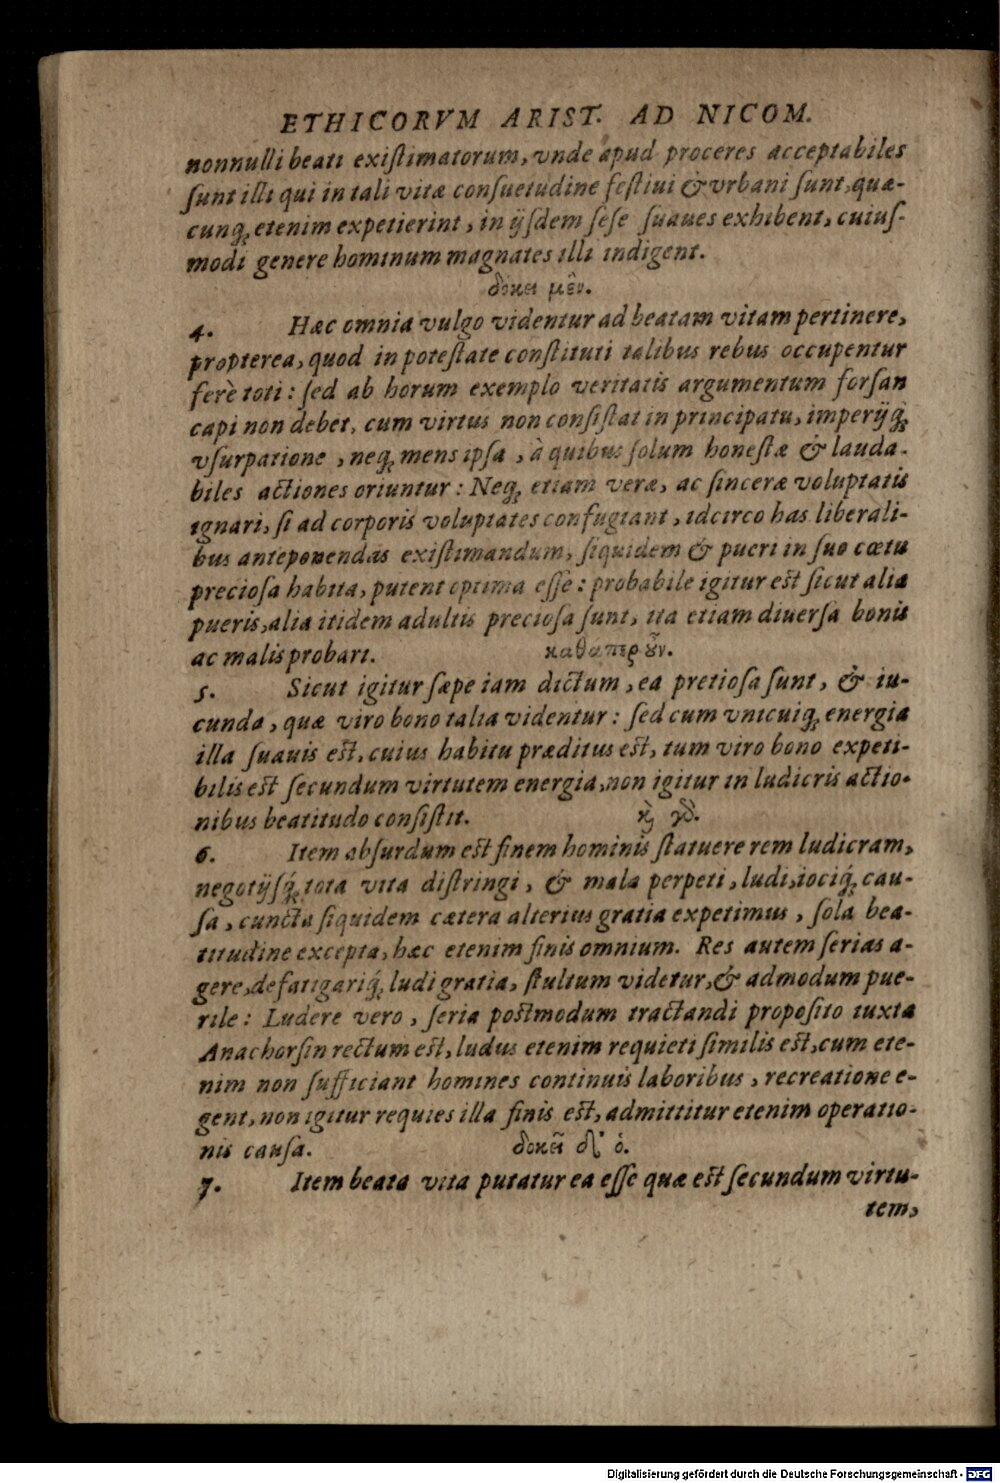 ETHICORVM ARIST. AD NICOM.
nonnulli beati exiſtimatorum, vnde apud proceres acceptabiles
ſunt illi qui in tali vitæ conſuetudine feſtiui & vrbani ſunt, quæ-
cunq; etenim expetierint, in ijſdem ſeſe ſuaues exhibent, cuiuſ-
modi genere hominum magnates illi indigent.
δοκει μὲν.
4. Hæc omnia vulgo videntur ad beatam vitam pertinere,
propterea, quod in poteſtate conſtituti talibus rebus occupentur
ferè toti: ſed ab horum exemplo veritatis argumentum forſan
capi non debet, cum virtus non conſiſtat in principatu, imperijq́;
vſurpatione, neq; mens ipſa, à quibus ſolum honeſtæ & lauda-
biles actiones oriuntur: Neq; etiam veræ, ac ſinceræ voluptatis
ignari, ſi ad corporis voluptates confugiant, idcirco has liberali-
bus anteponendas exiſtimandum, ſiquidem & pueri in ſuo cœtu
precioſa habita, putent optima eſſe: probabile igitur eſt ſicut alia
pueris, alia itidem adultis precioſa ſunt, ita etiam diuerſa bonis
ac malis probari. καθαπερ οὖν.
5. Sicut igitur ſæpe iam dictum, ea pretioſa ſunt, & iu-
cunda, quæ viro bono talia videntur: ſed cum vnicuiq; energia
illa ſuauis eſt, cuius habitu præditus eſt, tum viro bono expeti-
bilis eſt ſecundum virtutem energia, non igitur in ludicris actio-
nibus beatitudo conſiſtit. κ̀ γδ.
6. Item abſurdum eſt finem hominis ſtatuere rem ludicram,
negotijſq́; tota vita diſtringi, & mala perpeti, ludi, iociq́; cau-
ſa, cuncta ſiquidem cætera alterius gratia expetimus, ſola bea-
titudine excepta, hæc etenim finis omnium. Res autem ſerias a-
gere, defatigariq́; ludi gratia, ſtultum videtur, & admodum pue-
rile: Ludere vero, ſeria poſtmodum tractandi propoſito iuxta
Anachorſin rectum eſt, ludus etenim requieti ſimilis eſt, cum ete-
nim non ſufficiant homines continuis laboribus, recreatione e-
gent, non igitur requies illa finis eſt, admittitur etenim operatio-
nis cauſa. δοκεῖ δ' ὁ.
7. Item beata vita putatur ea eſſe quæ eſt ſecundum virtu-
tem,
Digitalisierung gefördert durch die Deutsche Forschungsgemeinschaft - DFG